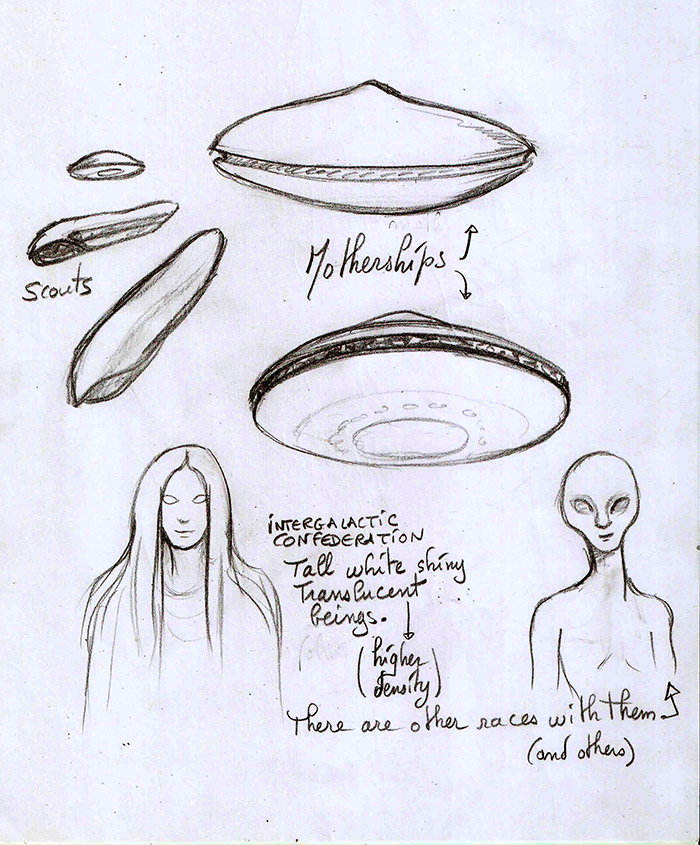 Motherships
Scouts
INTERGALACTIC
CONFEDERATION
Tall white shiny
Translucent
beings.
(higher
density)
There are other races with Them
(and others)